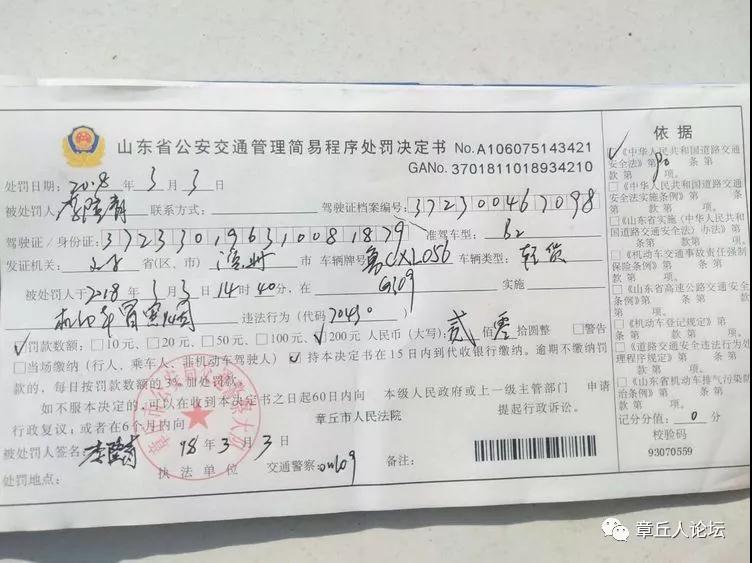 山东省公安交通管理简易程序处罚决定书 No.A106075143421
GANo. 3701811018934210
处罚日期: 2018 年 3 月 3 日
被处罚人 联系方式: 驾驶证档案编号: 372300467098
驾驶证/身份证: 372330196310081879 准驾车型: B2
发证机关: 省(区、市) 滨州 市 车辆牌号 车辆类型: 轻货
被处罚人于2018年 3 月 3 日 14 时 40 分, 在 G309 实施
机动车冒黑烟 违法行为 (代码 )
✓ □罚款数额: □10元、□20元、□50元、□100元、✓□200元 人民币 (大写): 贰 佰 零 拾圆整 □警告
□当场缴纳 (行人、乘车人、非机动车驾驶人) ✓ 持本决定书在15日内到代收银行缴纳。逾期不缴纳罚
款的, 每日按罚款数额的3%加处罚款。
如不服本决定的, 可以在收到本决定书之日起60日内向 本级人民政府或上一级主管部门 申请
行政复议; 或者在6个月内向 章丘市人民法院 提起行政诉讼。
被处罚人签名: 18 年 3 月 3 日
执法单位 交通警察: 备注:
处罚地点:
依据
✓ □《中华人民共和国道路交通
安全法》第 90 条 第
款 第 项。
□《中华人民共和国道路交通
安全法实施条例》第 条
第 款第 项。
□《山东省实施〈中华人民共和
国道路交通安全法〉办法》第
条第 款第 项。
□《机动车交通事故责任强制
保险条例》第 条第 款。
□《山东省高速公路交通安全
条例》第 条 第 款
第 项。
□《机动车登记规定》第 条
第 款第 项。
□《道路交通安全违法行为处
理程序规定》第 条第 款。
□《山东省机动车排气污染防
治条例》第 条 第
款第 项。
记分分值: 0 分
校验码
93070559
章丘人论坛